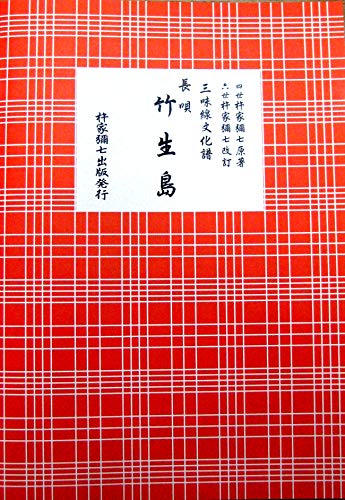 四世杵家彌七原著
六世杵家彌七改訂
三味線文化譜
長唄
竹生島
杵家彌七出版発行